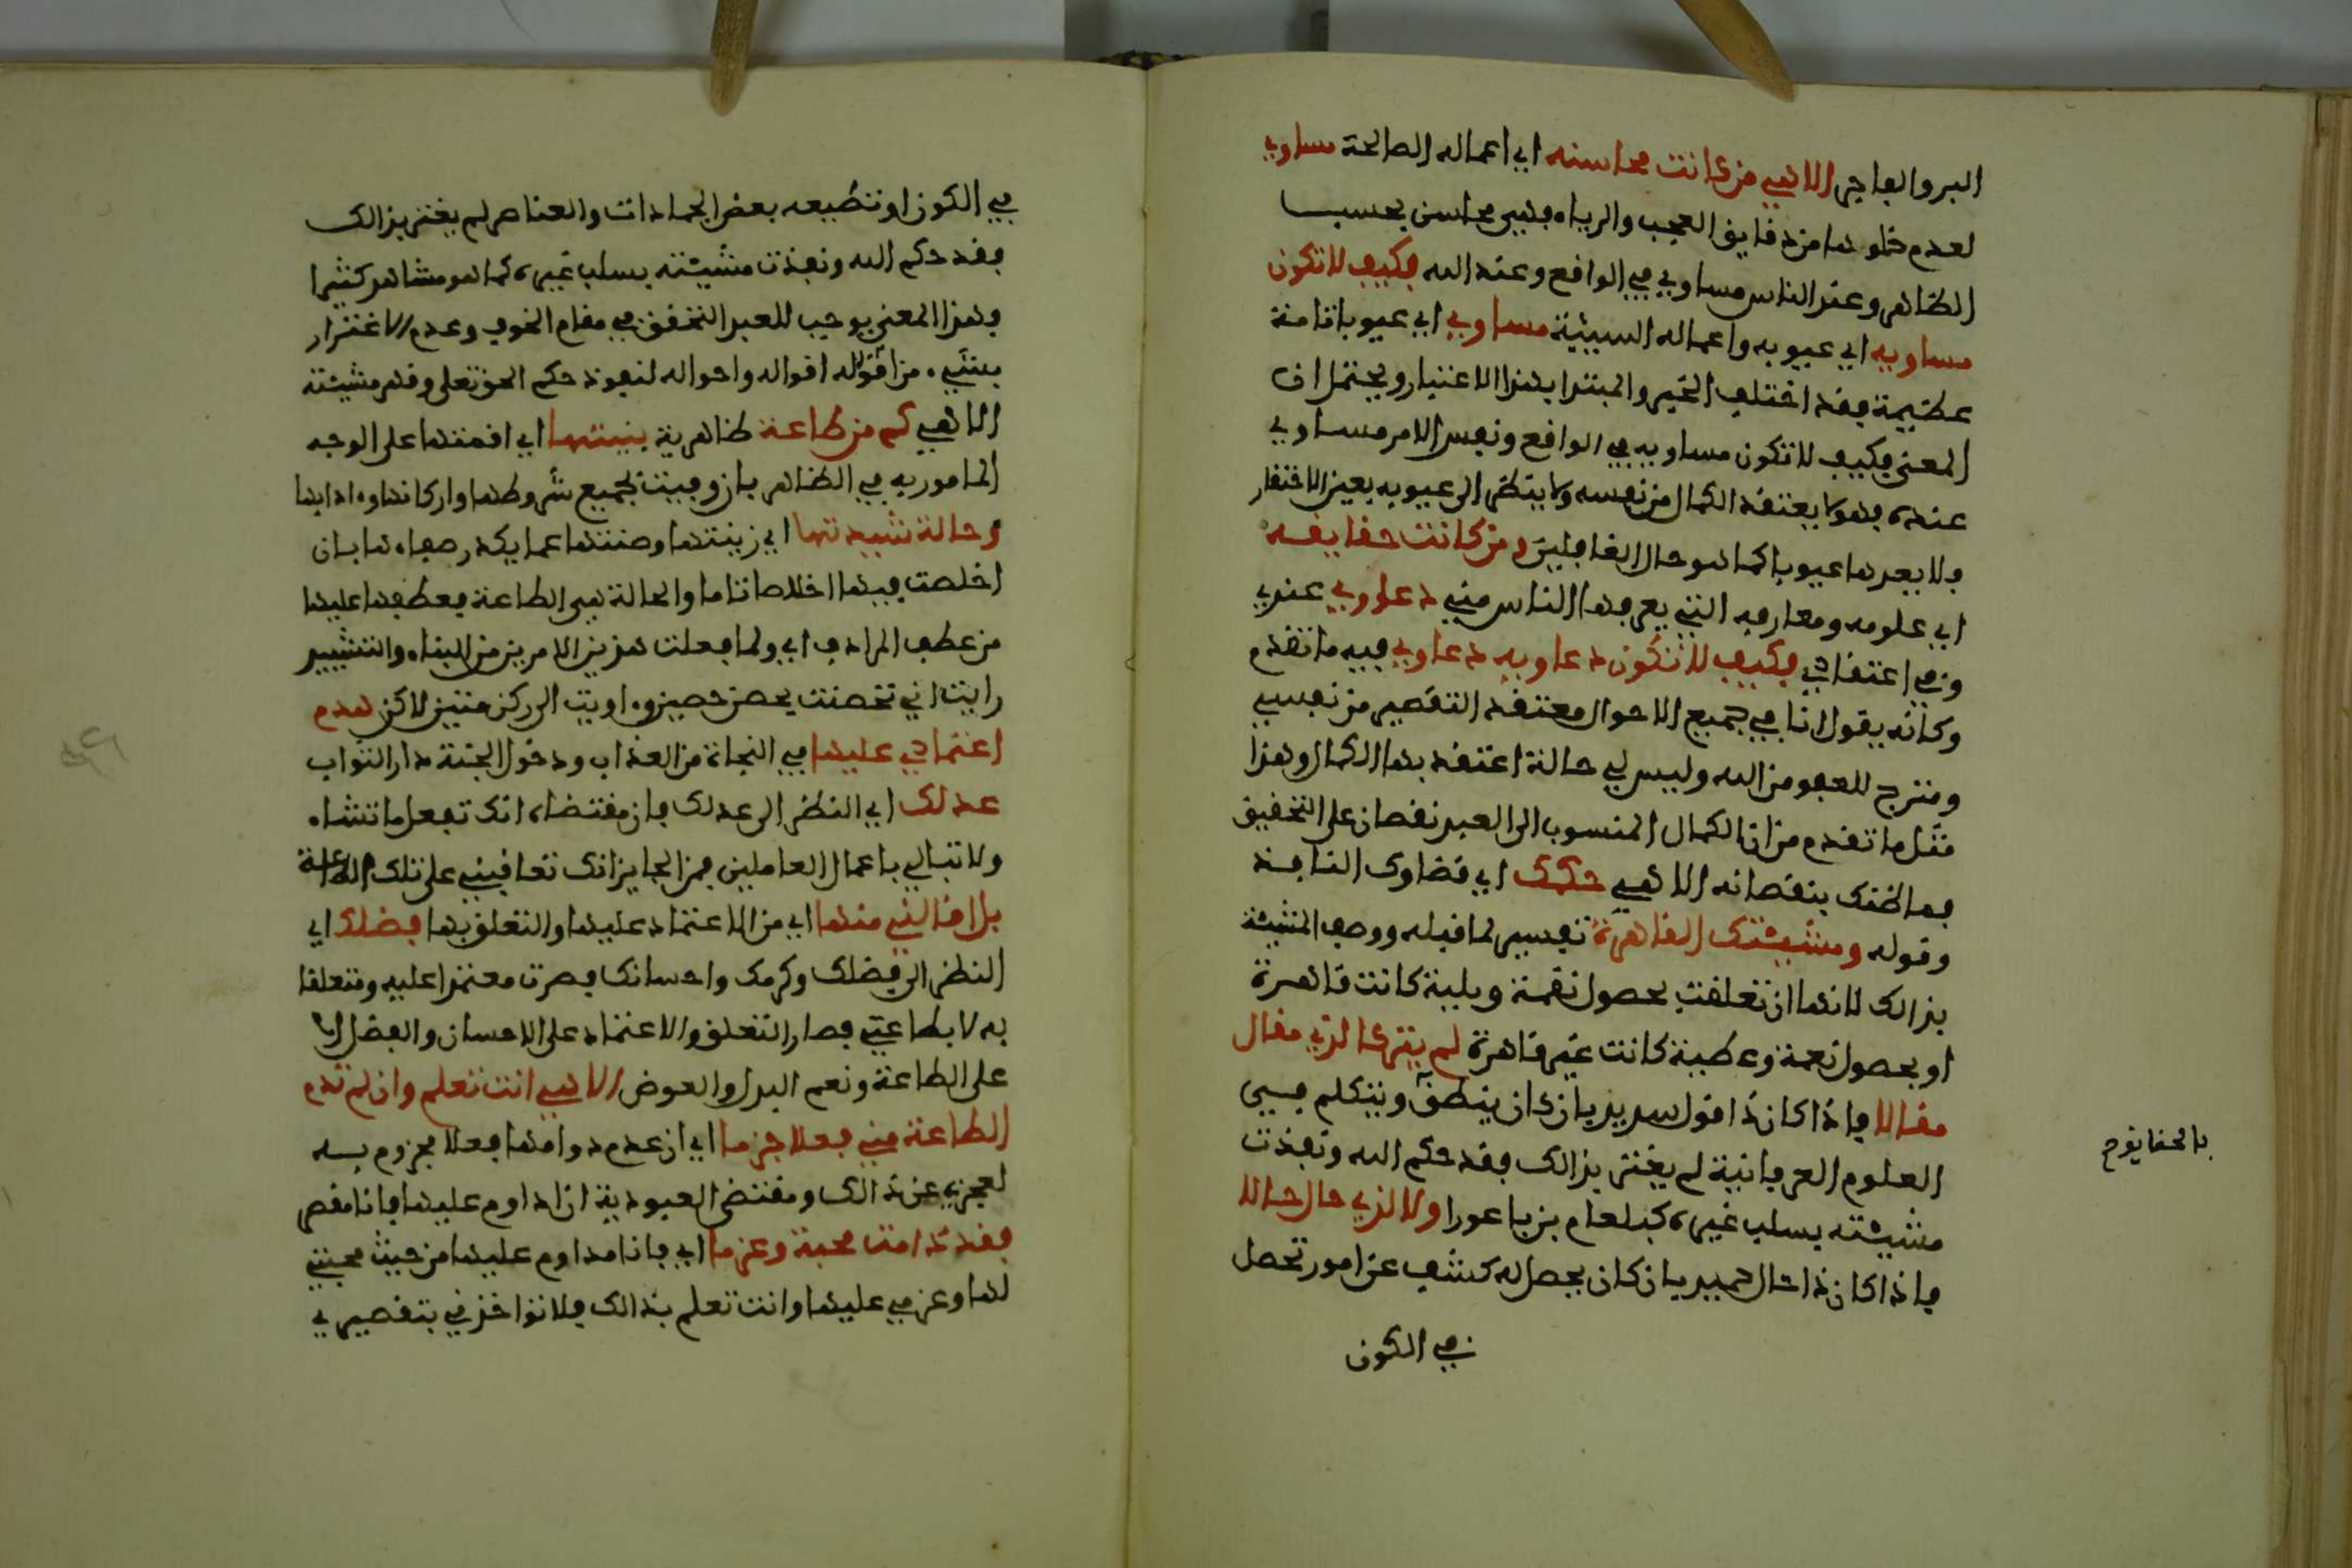 البر والفاجر الاهي من كانت محاسنه اي اعماله الصالحة مساوي
لعدم خلوها من دقايق العجب والرياء فهي محاسن بحسب
الظاهر وعند الناس مساوي في الواقع وعند الله فكيف لا تكون
مساويه اي عيوبه واعماله السيئة مساوي اي عيوبا تامة
عظيمة فقد اختلف الخبر والمبتدا بهذا الاعتبار ويحتمل ان
المعنى فكيف لا تكون مساويه في الواقع ونفس الامر مساوي
عنده فهو لا يعتقد الكمال من نفسه ولا ينظر الى عيوبه بعين الافتقار
فلا يعدها عيوبا كما هو حال الغافلين ومن كانت حقايقه
اي علومه ومعارفه التي يعرفها الناس مني دعاوي عندي
وفي اعتقادي فكيف لا تكون دعاويه دعاوي فيه ما تقدم
وكانه يقول انا في جميع الاحوال معتقد التقصير من نفسي
ومترج للعفو من الله وليس لي حالة اعتقد بها الكمال وهذا
مثل ما تقدم من ان الكمال المنسوب الى العبد نقصان على التحقيق
فما ظنك بنقصانه الاهي حكمك اي قضاوك النافذ
وقوله ومشيئتك القاهرة تفسير لما قبله ووصف المشيئة
بذالك لانها ان تعلقت بحصول نقمة وبلية كانت قاهرة
او بحصول نعمة وعطية كانت غير قاهرة لم يتركا لذي مقال
مقالا فاذا كان ذا قول سديد بان كان ينطق ويتكلم في
العلوم العرفانية لم يغتر بذالك فقد حكم الله ونفذت
مشيئته بسلب غيره كبلعام بن باعورا ولا لذي حال حالا
فاذا كان ذا حال حميد بان كان يحصل له كشف عن امور تحصل
في الكون
بالحقايق ح
في الكون او تطيعه بعض الجمادات والعناصر لم يغتر بذالك
فقد حكم الله ونفذت مشيئته بسلب غيره كما هو مشاهد كثيرا
وهذا المعنى يوجب للعبد التحقق في مقام الخوف وعدم الاغترار
بشيء من اقواله واحواله لنفوذ حكم الحق تعلى وقهر مشيئته
الاهي كم من طاعة ظاهرية بنيتها اي اقمتها على الوجه
المامور به في الظاهر بان وفيت بجميع شروطها واركانها وادابها
وحالة شيدتها اي زينتها وصنتها عما يكدر صفاها بان
اخلصت فيها اخلاصا تاما والحالة هي الطاعة فعطفها عليها
من عطف المرادف اي ولما فعلت هذين الامرين من البناء والتشييد
رايت اني تحصنت بحصن حصين واويت الى ركن متين لاكن هدم
اعتمادي عليها في النجاة من العذاب ودخول الجنة دار الثواب
عدلك اي النظر الى عدلك فان مقتضاه انك تفعل ما تشاء
ولا تبالي باعمال العاملين فمن الجايز انك تعاقبني على تلك الطاعة
بل اقالني منها اي من الاعتماد عليها والتعلق بها فضلك اي
النظر الى فضلك وكرمك واحسانك فصرت معتمدا عليه ومتعلقا
به لا بطاعتي فصار التعلق والاعتماد على الاحسان والفضل لا
على الطاعة ونعم البدل والعوض الاهي انت تعلم وان لم تدم
الطاعة مني فعلا جزما اي ان عدم دوامها فعلا مجزوم به
لعجزي عن ذالك ومقتضى العبودية ان اداوم عليها فانا مقصر
فقد دامت محبة وعزما اي فانا مداوم عليها من حيث محبتي
لها وعزمي عليها وانت تعلم بذالك فلا تواخذني بتقصيري